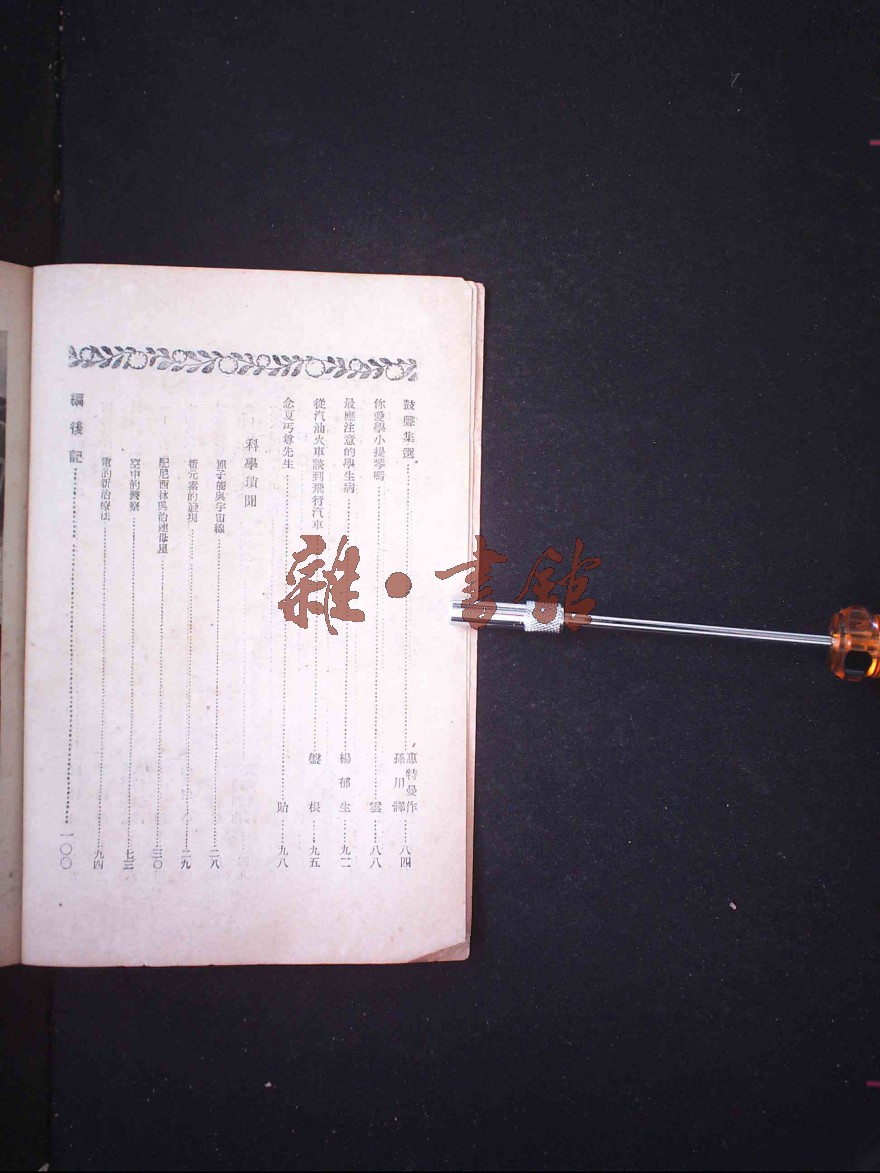 鼓聲集選 惠特曼作 孫用譯 八四
你愛學小提琴嗎 雲 八八
最應注意的學生病 楊郁生 九二
從汽油火車談到飛行汽車 盤根 九五
念夏丏尊先生 貽 九八
科學瑣聞
原子能與宇宙線 二八
新元素的發現 二九
配尼西林與治 三〇
空中的警察 七三
電的新治療法 九四
編後記 一〇〇
雜·書館